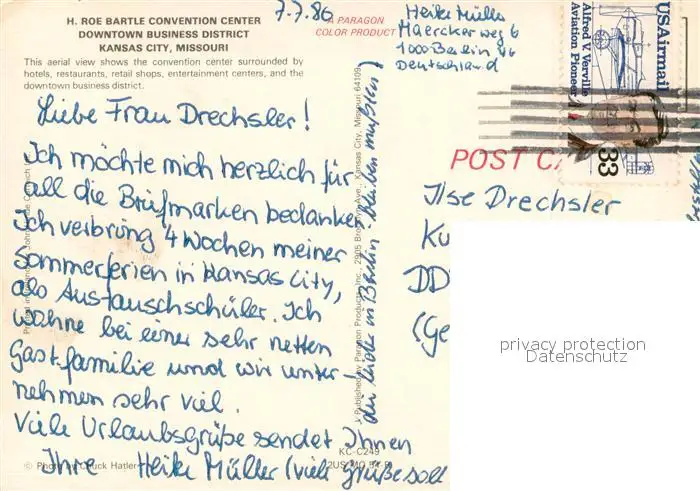 H. ROE BARTLE CONVENTION CENTER
DOWNTOWN BUSINESS DISTRICT
KANSAS CITY, MISSOURI
This aerial view shows the convention center surrounded by
hotels, restaurants, retail shops, entertainment centers, and the
downtown business district.
7.7.86
A PARAGON
COLOR PRODUCT
Heike Müller
Maercker weg 6
1000 Berlin 46
Deutschland
USAirmail
Alfred V. Verville
Aviation Pioneer
33
Liebe Frau Drechsler!
Ich möchte mich herzlich für
all die Briefmarken bedanken
Ich verbring 4 Wochen meiner
sommerferien in Kansas City,
als Austauschschüler. Ich
wohne bei einer sehr netten
Gastfamilie und wir unter-
nehmen sehr viel.
Viele Urlaubsgrüße sendet Ihnen
Ihre Heike Müller (viele grüße soll
die leider in Berlin bleiben mußten)
Published by Paragon Products Inc., 2905 Brooklyn Ave., Kansas City, Missouri 64109
POST CA
Ilse Drechsler
Ku
DD
(Ge
KC-C249
2US MO
© Photo by Chuck Hatler
privacy protection
Datenschutz